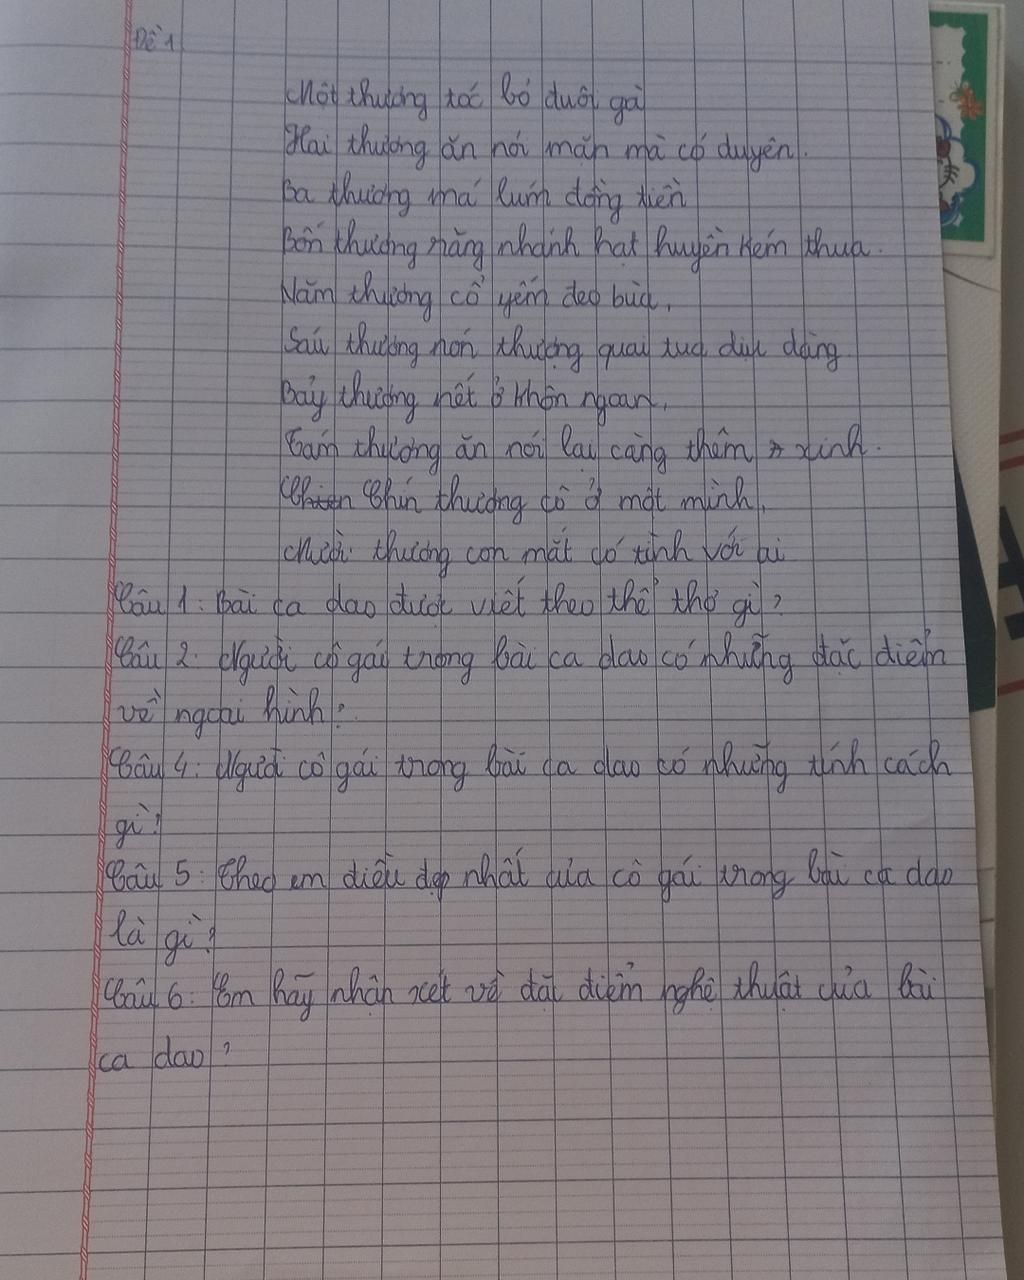 Đề 1
Một thương tóc bỏ đuôi gà
Hai thương ăn nói mặn mà có duyên.
Ba thương má lúm đồng tiền
Bốn thương răng nhánh hạt huyền kém thua.
Năm thương cổ yếm đeo bùa,
Sáu thương nón thượng quai tua dịu dàng
Bảy thương nết ở khôn ngoan,
Tám thương ăn nói lại càng thêm xinh.
Chín thương cô ở một mình,
Mười thương con mắt có tình với ai
Câu 1: Bài ca dao được viết theo thể thơ gì?
Câu 2: Người cô gái trong bài ca dao có những đặc điểm
về ngoại hình?
Câu 4: Người cô gái trong bài ca dao có những tính cách
gì?
Câu 5: Theo em điều đẹp nhất của cô gái trong bài ca dao
là gì?
Câu 6: Em hãy nhận xét về đặc điểm nghệ thuật của bài
ca dao?